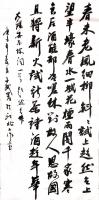 春未老風細柳斜斜試上超然臺上
望半壕春水一城花煙雨暗千家寒
食后酒醒却咨嗟休對故人思故國
且將新火試新茶詩酒趁年華